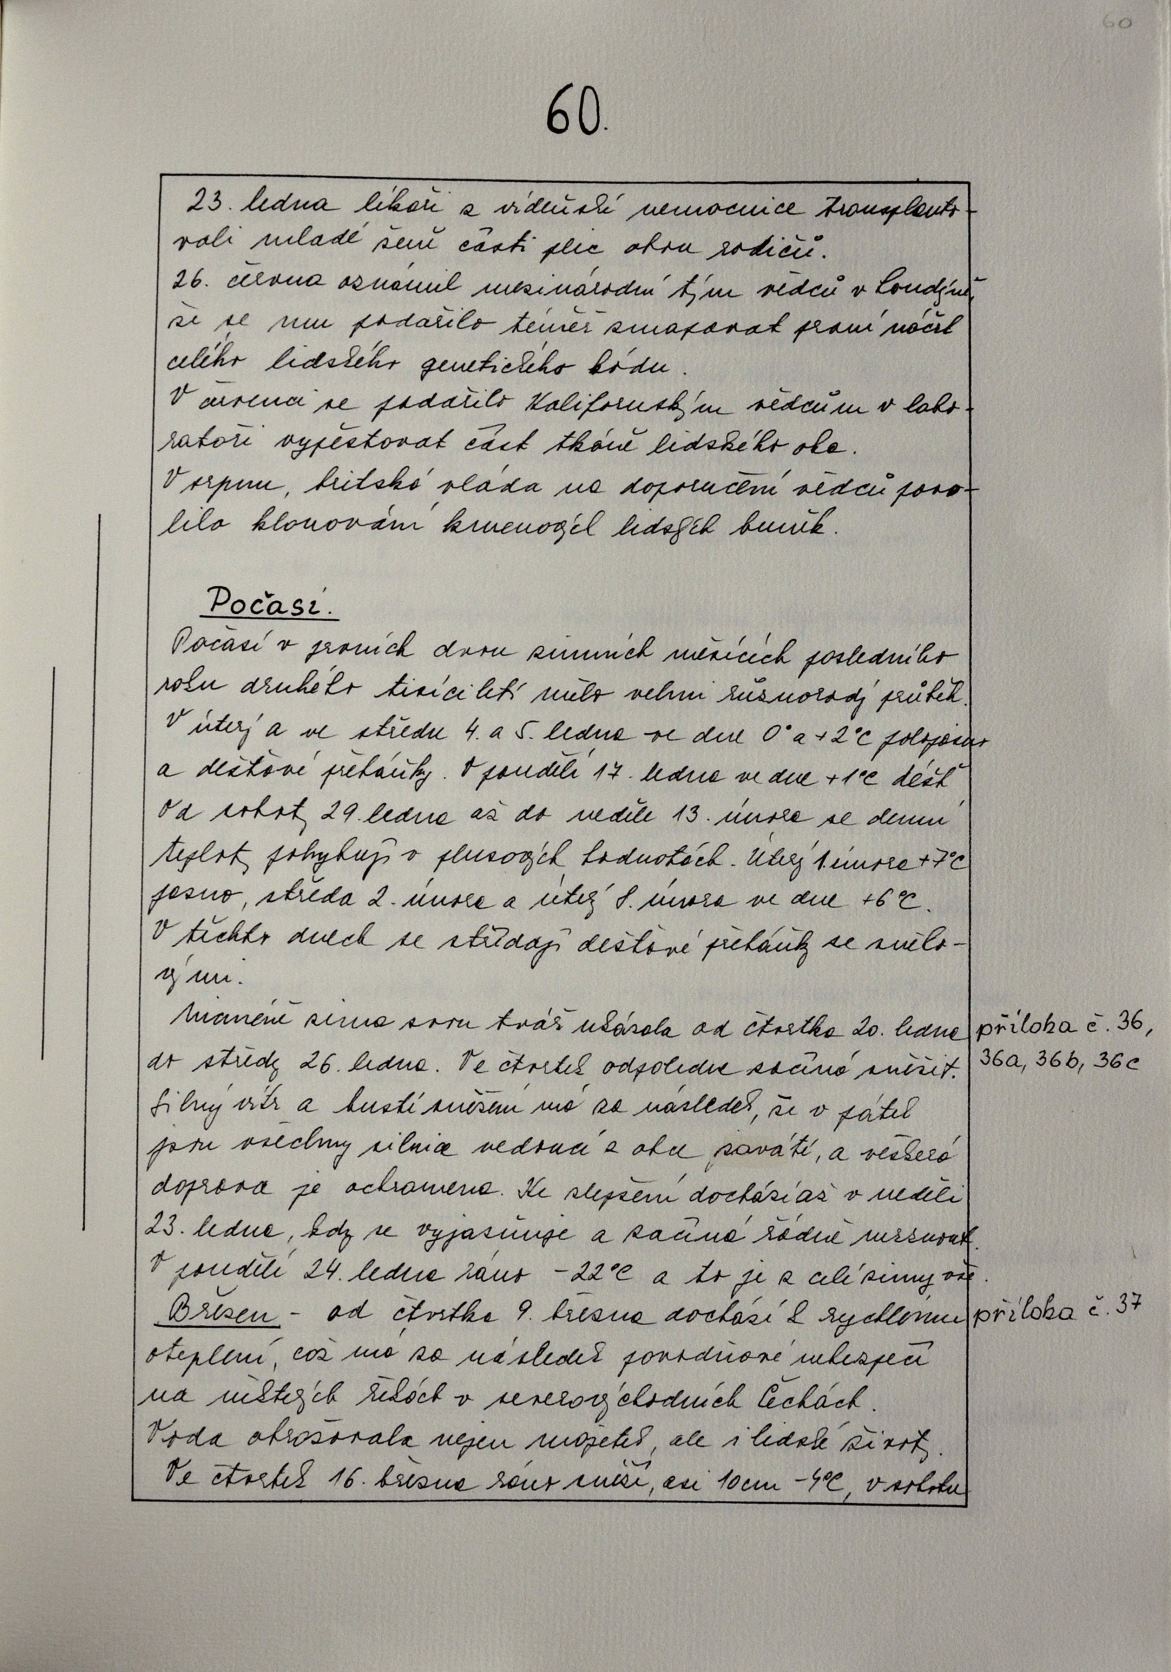 60
60.
23. ledna lékaři z vídeňské nemocnice transplanto-
vali mladé ženě části plic obou rodičů.
26. června oznámil mezinárodní tým vědců v Londýně,
že se mu podařilo téměř zmapovat první náčrt
celého lidského genetického kódu.
V červenci se podařilo Kalifornským vědcům v labo-
ratoři vypěstovat část tkáně lidského oka.
V srpnu, britská vláda na doporučení vědců povo-
lila klonování kmenových lidských buněk.
Počasí.
Počasí v prvních dvou zimních měsících posledního
roku druhého tisíciletí mělo velmi různorodý průběh.
V úterý a ve středu 4. a 5. ledna ve dne 0° a +2°C polojasno
a dešťové přeháňky. V pondělí 17. ledna ve dne +1°C déšť
Od soboty 29. ledna až do neděle 13. února se denní
teploty pohybují v plusových hodnotách. Úterý 1. února +7°C
jasno, středa 2. února a úterý 8. února ve dne +6°C.
V těchto dnech se střídají dešťové přeháňky se sněho-
vými.
zima svou tvář ukázala od čtvrtka 20. ledna
příloha č. 36,
do středy 26. ledna. Ve čtvrtek odpoledne začíná sněžit.
36a, 36b, 36c
Silný vítr a husté sněžení má za následek, že v pátek
jsou všechny silnice vedoucí z obce zaváté, a veškerá
doprava je ochromena. Ke zlepšení dochází až v neděli
23. ledna, kdy se vyjasňuje a začíná řádně mrznout.
V pondělí 24. ledna ráno -22°C a to je z celé zimy vše.
Březen - od čtvrtka 9. března dochází k rychlému
příloha č. 37
oteplení, což má za následek povodňové nebezpečí
na některých řekách v severovýchodních Čechách.
Voda ohrožovala nejen majetek, ale i lidské životy.
Ve čtvrtek 16. března ráno sněží, asi 10cm -4°C, v sobotu